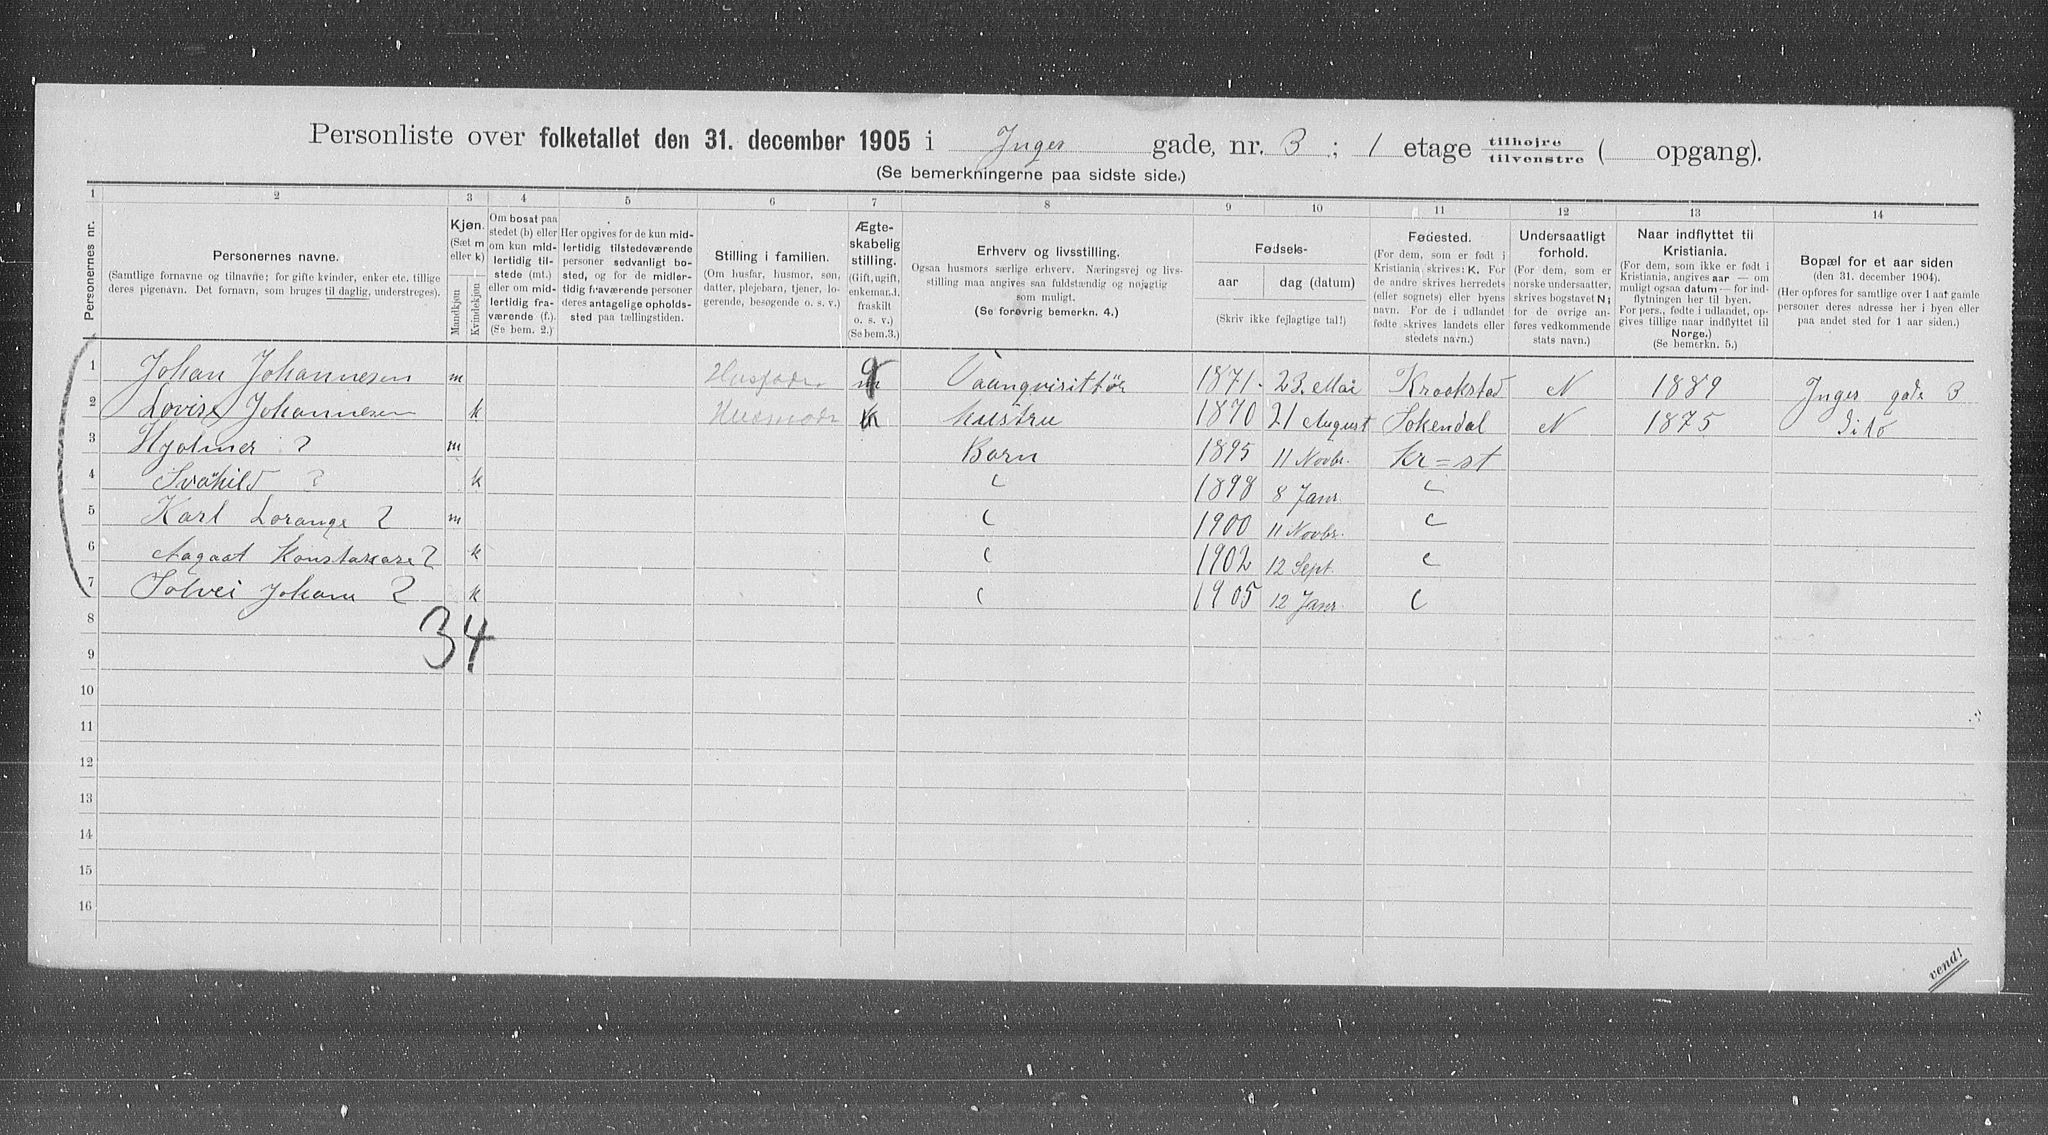 Personliste over folketallet den 31. december 1905 i Inges gade, nr. 3 ; 1 etage tilhøjre tilvenstre ( opgang).
(Se bemerkningerne paa sidste side.)
1 2 3 4 5 6 7 8 9 10 11 12 13 14
Personernes nr.
Personernes navne.
(Samtlige fornavne og tilnavne; for gifte kvinder, enker etc. tillige
deres pigenavn. Det fornavn, som bruges til daglig, understreges).
Kjøn.
(Sæt m
eller k)
Mandkjøn
Kvindekjøn
Om bosat paa
stedet (b) eller
om kun mid-
lertidig til-
stede (mt.)
eller om mid-
lertidig fra-
værende (f.).
(Se bem. 2.)
Her opgives for de kun mid-
lertidig tilstedeværende
personer sedvanligt bo-
sted, og for de midler-
tidig fraværende personer
deres antagelige opholds-
sted paa tællingstiden.
Stilling i familien.
(Om husfar, husmor, søn,
datter, plejebarn, tjener, lo-
gerende, besøgende o. s. v.)
Ægte-
skabelig
stilling.
(Gift, ugift,
enkemand,
fraskilt
o. s. v.)
(Se bem. 3.)
Erhverv og livsstilling.
Ogsaa husmors særlige erhverv. Næringsvej og livs-
stilling maa angives saa fuldstændig og nøjagtig
som muligt.
(Se forøvrig bemerkn. 4.)
Fødsels-
aar dag (datum)
(Skriv ikke fejlagtige tal!)
Fødested.
(For dem, som er født i
Kristiania skrives: K. For
de andre skrives herredets
(eller sognets) eller byens
navn. For de i udlandet
fødte skrives landets eller
stedets navn.)
Undersaatligt
forhold.
(For dem, som er
norske undersaatter,
skrives bogstavet N;
for de øvrige an-
føres vedkommende
stats navn.)
Naar indflyttet til
Kristiania.
(For dem, som ikke er født i
Kristiania, angives aar — om
muligt ogsaa datum — for ind-
flytningen her til byen.
For pers., fødte i udlandet, op-
gives tillige naar indflyttet til
Norge.)
(Se bemerkn. 5.)
Bopæl for et aar siden
(den 31. december 1904).
(Her opføres for samtlige over 1 aar gamle
personer deres adresse her i byen eller
paa andet sted for 1 aar siden.)
1 Johan Johannesen m Husfader g 1871 23. Mai Krookstad N 1889 Inges gade 3
2 Lovise Johannesen k Husmoder Hustru 1870 21 August Sokendal N 1875 dito
3 Hjalmer ? m Barn 1895 11 Novbr. Kr=st
4 k " 1898 8 Janr. "
5 Karl Lorange ? m " 1900 11 Novbr. "
6 k " 1902 12 Sept. "
7 Solvei Johane ? k " 1905 12 Janr. "
8 34
9
10
11
12
13
14
15
16
vend!